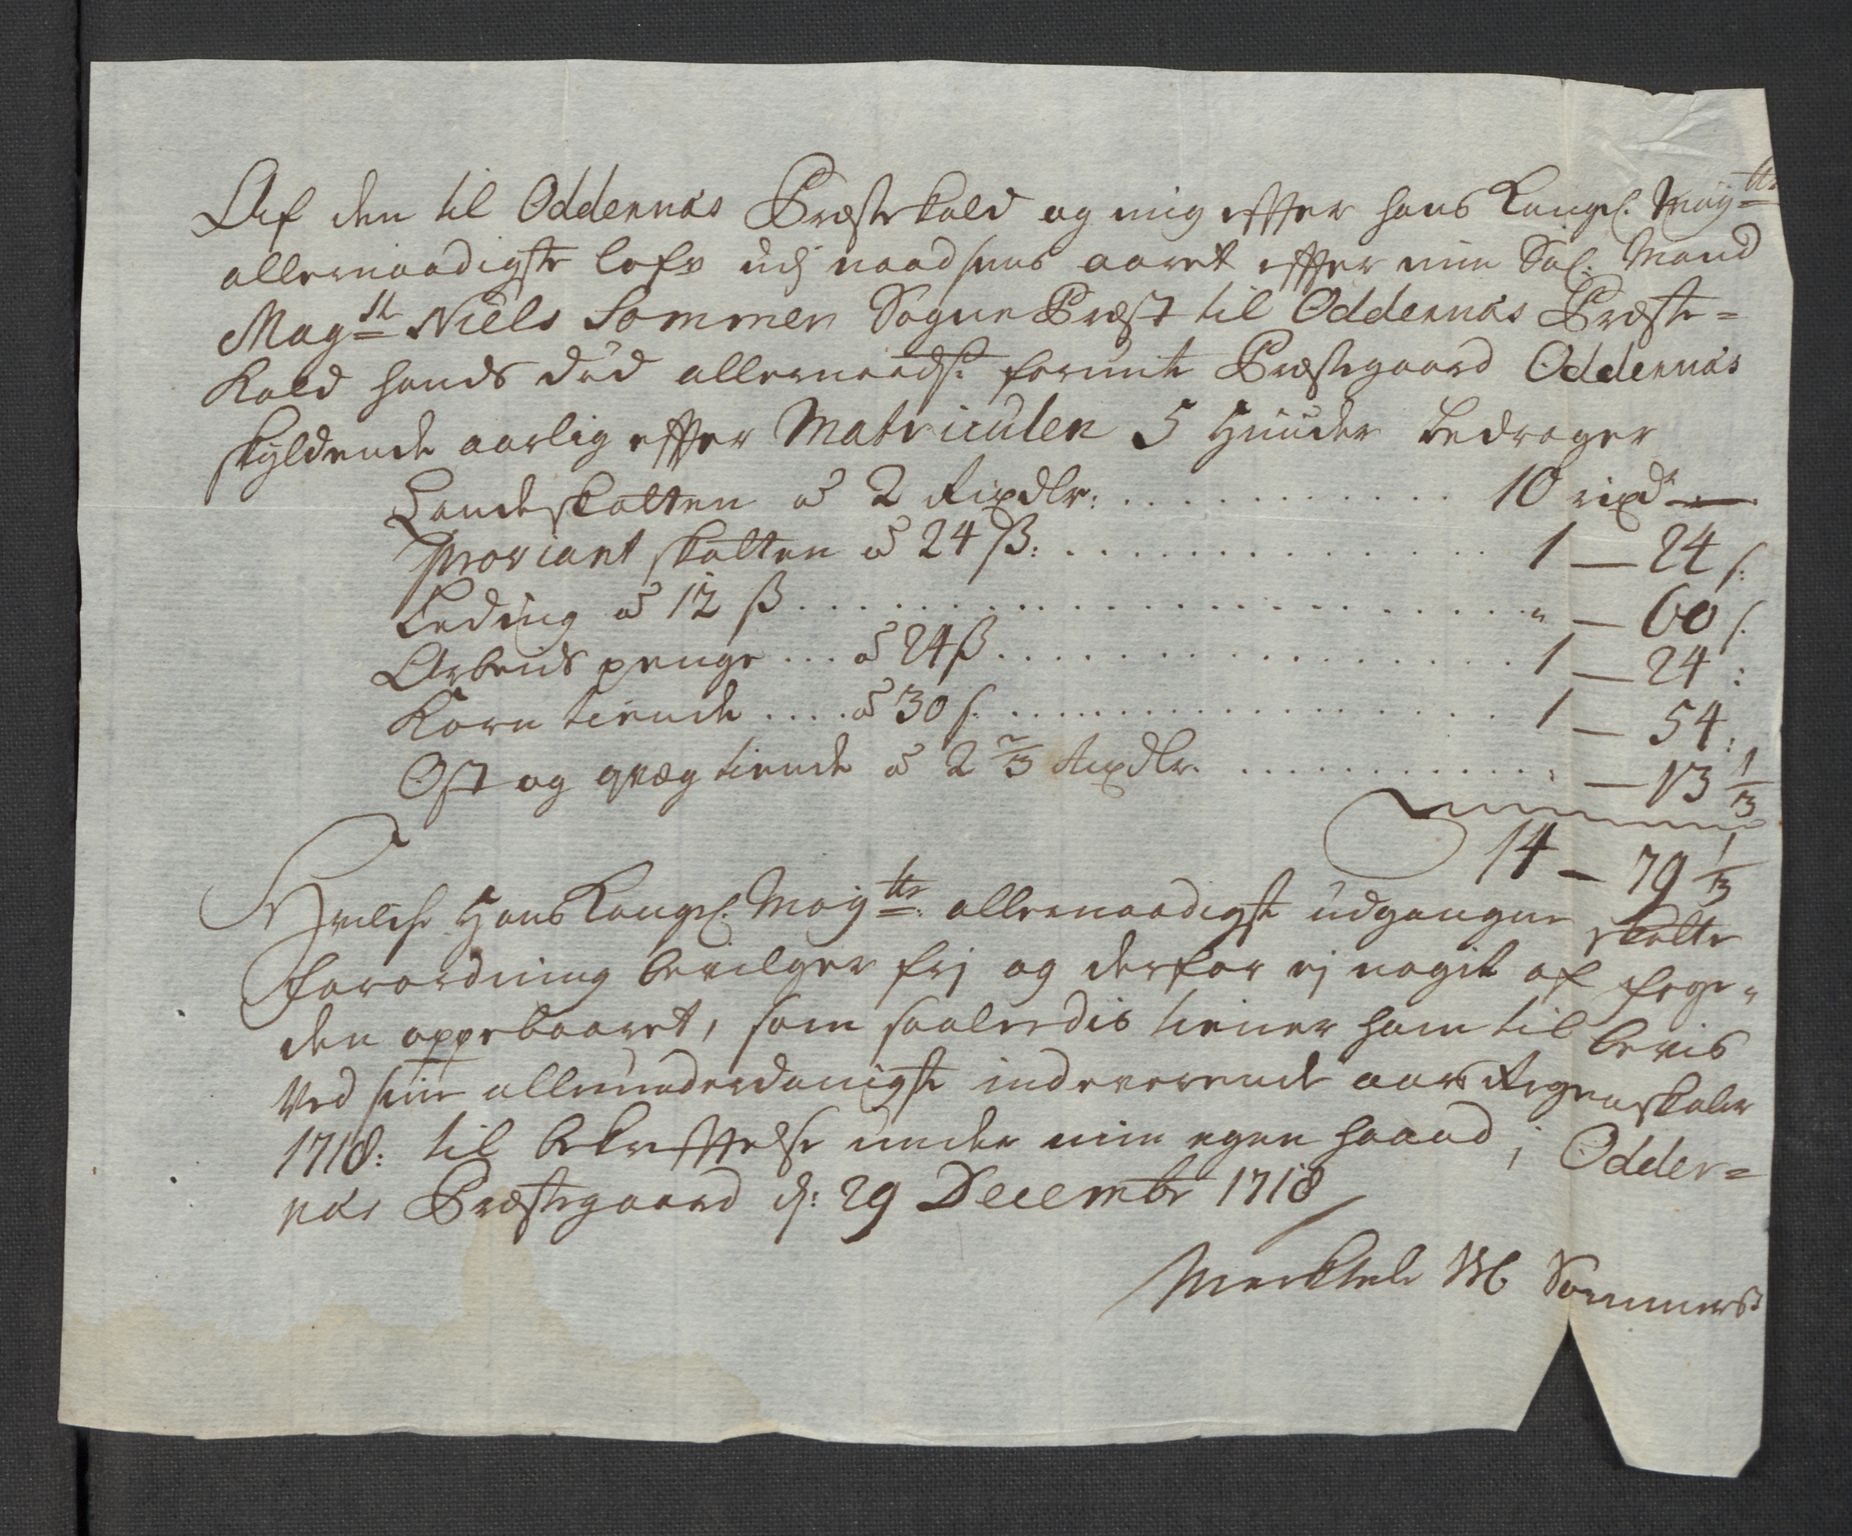 Af den til Oddernæs Præstekald og mig effter hans Kongel. Mayts
allernaadigste lofv udj naadsens aaret effter min Sal. Mand
Magst Niels Sommer Sogne Præst til Oddernæs Præste=
Kald hands død allernaadst forunte Præstegaard Oddernæs
skyldende aarlig effter Matriculen 5 Huuder bedrager
Landskatten â 2 Rixdlr: . . . . . . . . . . 10 rixdr —
Proviant skatten â 24 ß: . . . . . . . . . . 1 — 24 s:
Leding â 12 ß . . . . . . . . . . " — 60 s.
Arbeids penge . . . â 24 ß . . . . . . . . . . 1 — 24 :
Korn tiende . . . . â 30 s. . . . . . . . . . . 1 — 54 :
Ost og qvæg tiende â 2 2/3 Rixdlr. . . . . . . . . . . — 13 1/3
14 — 79 1/3
Hvilche Hans Kongel. Mayts: allernaadigst udgangne skatte
forordning bevilger frj og derfor ej nogit af foge=
den oppebaaret, som saaledis tiener ham til bevis
Ved sin allerunderdanigst indleverende aars Regenskaber
1718: til bekræfftelse under min egen haand, i Odder=
næs Præstegaard d: 29 Decembr 1718
Sommers